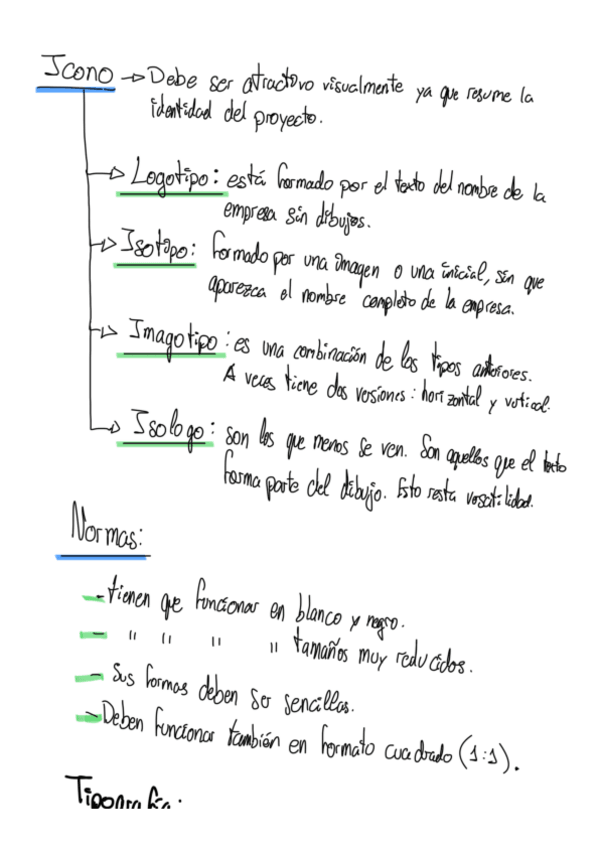 Icono → Debe ser atractivo visualmente ya que resume la
identidad del proyecto.
→ Logotipo: está formado por el texto del nombre de la
empresa sin dibujos.
→ Isotipo: formado por una imagen o una inicial, sin que
aparezca el nombre completo de la empresa.
→ Imagotipo: es una combinación de los tipos anteriores.
A veces tiene dos versiones: horizontal y vertical.
→ Isologo: son los que menos se ven. Son aquellos que el texto
forma parte del dibujo. Esto resta versatilidad.
Normas:
- tienen que funcionar en blanco y negro.
- " " " " tamaños muy reducidos.
- Sus formas deben ser sencillas.
- Deben funcionar también en formato cuadrado (1:1).
Tipografía: